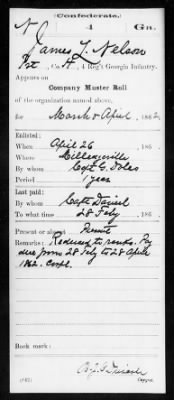 (Confederate.)
N 4 Ga.
James L. Nelson
Pvt, Co. H, 4 Reg't Georgia Infantry.
Appears on
Company Muster Roll
of the organization named above,
for March & April, 1862.
Enlisted:
When April 26, 186 .
Where Milledgeville
By whom Capt G. Doles
Period 1 year
Last paid:
By whom Capt Daniel
To what time 28 Feby, 186 .
Present or absent Present
Remarks: Reduced to ranks. Pay
due from 28 Feby to 28 April
1862. Corpl.
Book mark:
(642)
Copyist.